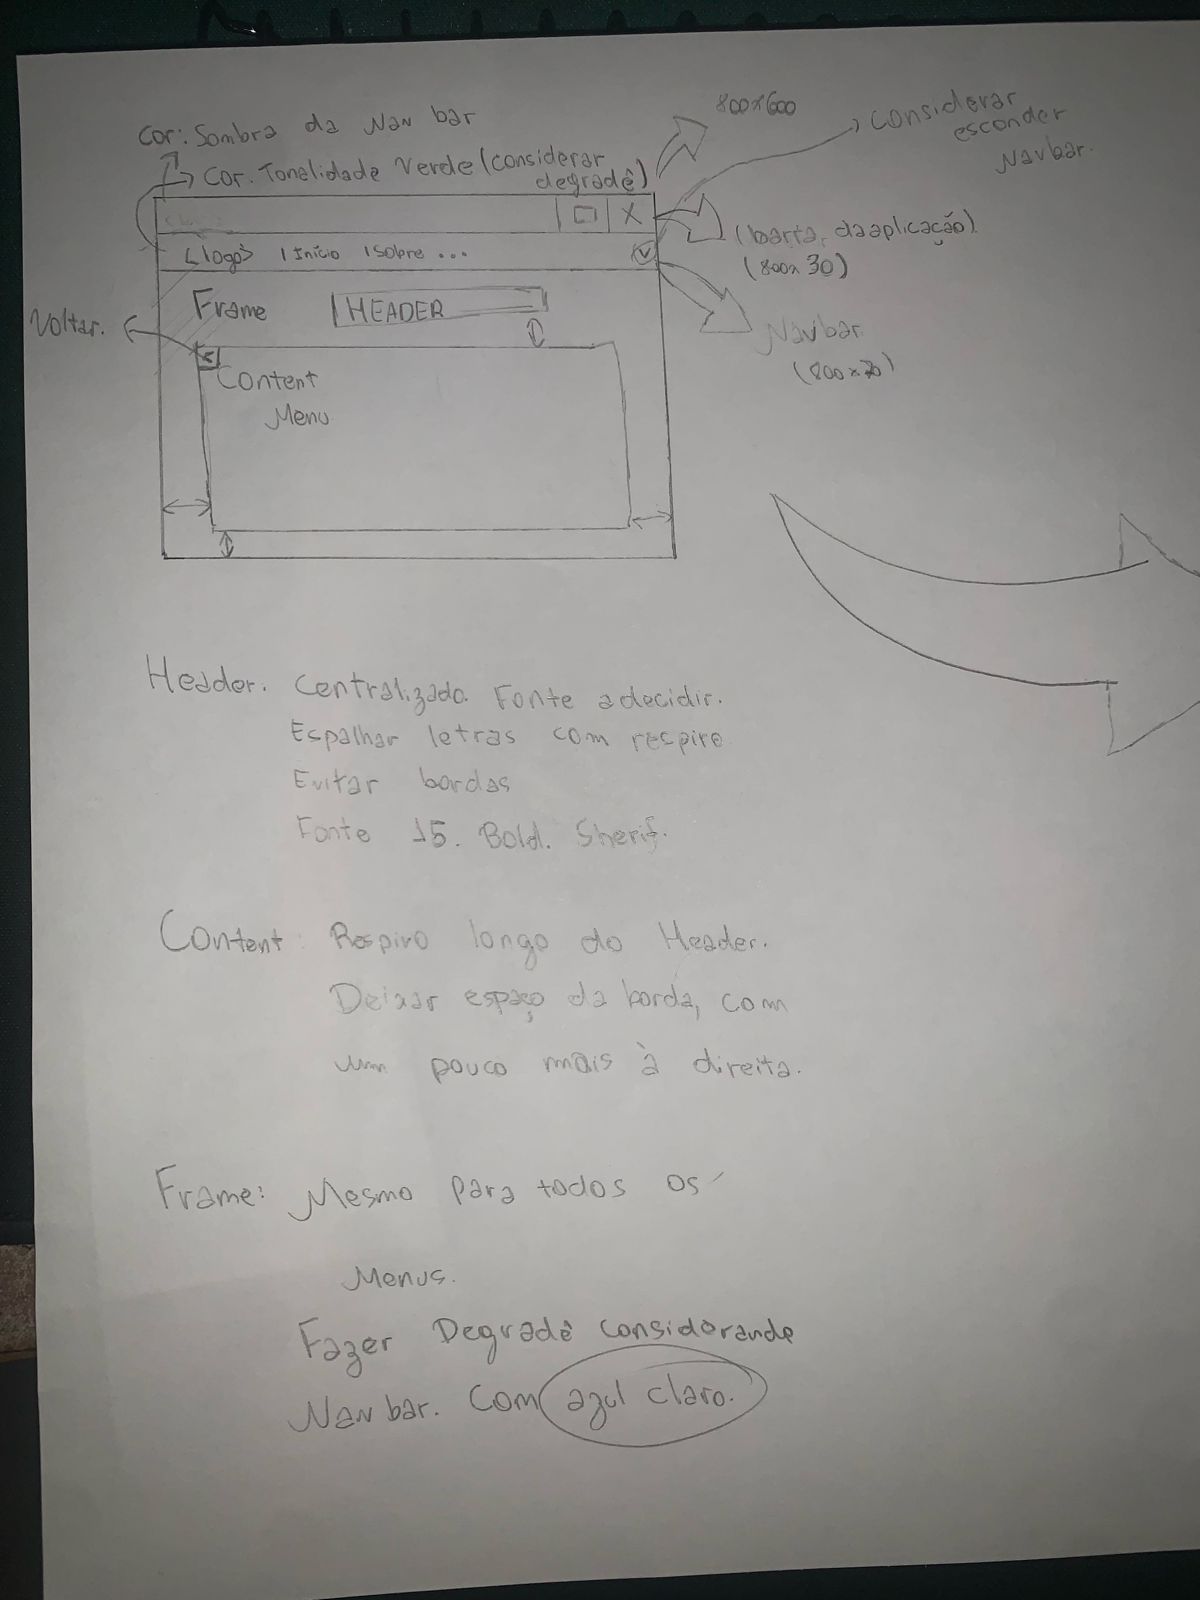 800x600
Considerar
esconder
Navbar.
Cor: Sombra da Navbar
Cor. Tonalidade Verde (considerar
degradê)
X
(barra da aplicação)
(800x30)
<logo> | Início | Sobre ...
Frame
HEADER
Voltar.
Navbar
<
Content
Menu
Header. Centralizado. Fonte a decidir.
Espalhar letras com respiro
Evitar bordas
Fonte 15. Bold. Sherif.
Content: Respiro longo do Header.
Deixar espaço da borda, com
um pouco mais à direita.
Frame: Mesmo para todos os
Menus.
Fazer Degradê considerando
Navbar. Com azul claro.